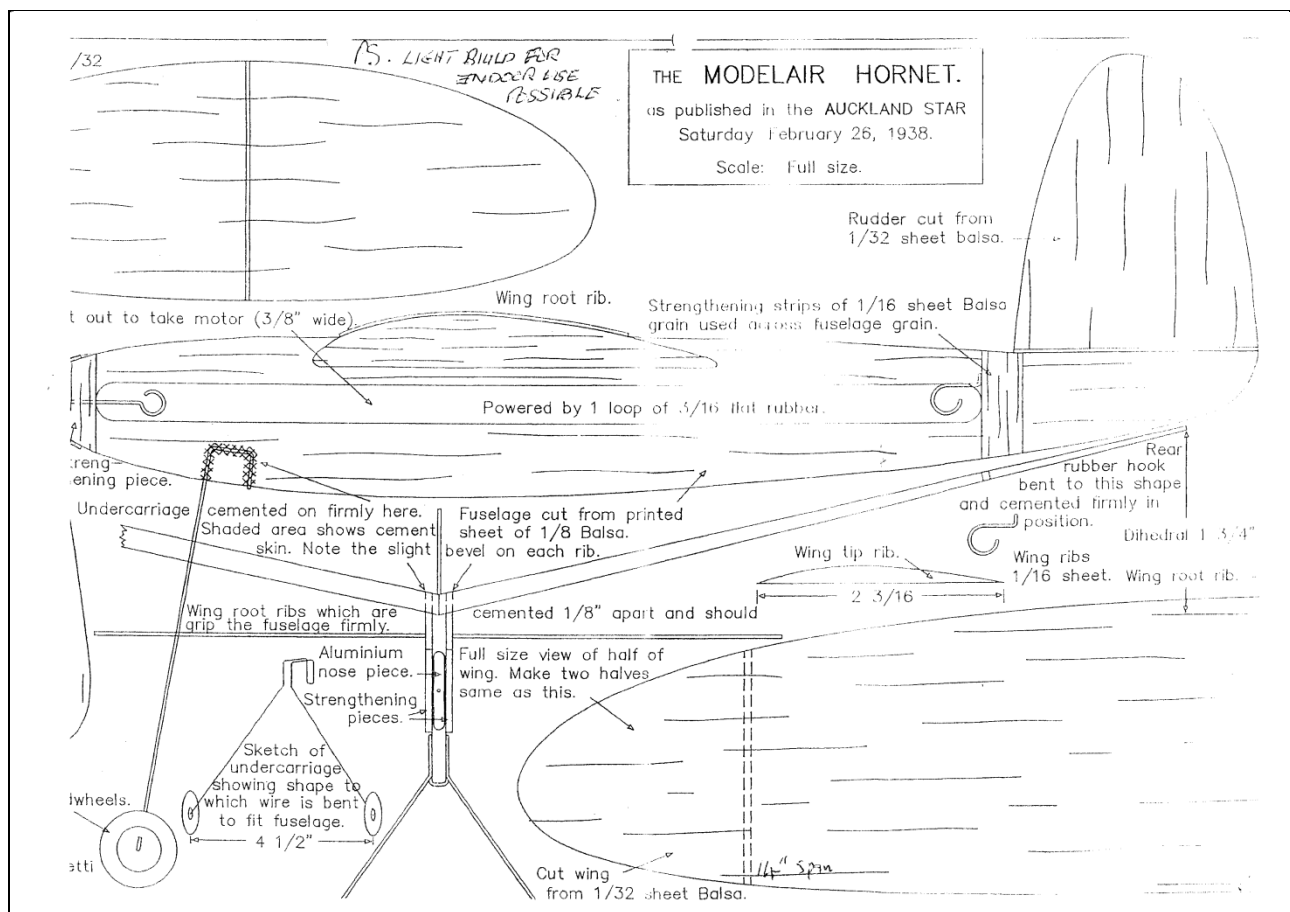 /32
PS. LIGHT BUILD FOR
INDOOR USE
POSSIBLE
THE MODELAIR HORNET.
as published in the AUCKLAND STAR
Saturday February 26, 1938.
Scale: Full size.
Rudder cut from
1/32 sheet balsa.
Wing root rib.
Strengthening strips of 1/16 sheet Balsa
grain used across fuselage grain.
t out to take motor (3/8" wide).
Powered by 1 loop of 3/16 flat rubber.
treng-
ening piece.
Undercarriage cemented on firmly here.
Shaded area shows cement
skin. Note the slight bevel on each rib.
Fuselage cut from printed
sheet of 1/8 Balsa.
Rear
rubber hook
bent to this shape
and cemented firmly in
position.
Dihedral 1 3/4"
Wing tip rib.
2 3/16
Wing ribs
1/16 sheet. Wing root rib.
Wing root ribs which are cemented 1/8" apart and should
grip the fuselage firmly.
Aluminium
nose piece.
Strengthening
pieces.
Full size view of half of
wing. Make two halves
same as this.
Sketch of
undercarriage
showing shape to
which wire is bent
to fit fuselage.
4 1/2"
dwheels.
etti
Cut wing
from 1/32 sheet Balsa.
14" Span